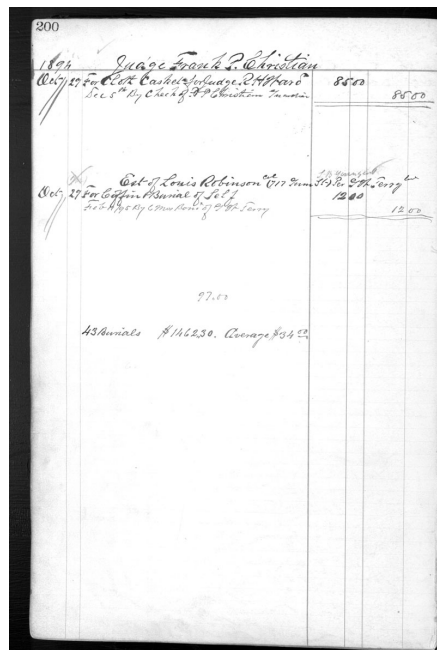 200
1894 Judge Frank P. Christian
Oct 27 For Cloth Casket for Judge R H Ward 85 00
Dec 5th By Check of F P Christian 85 00
Est of Louis Robinson 717 St) Per Terry
Oct 27 For Coffin & Burial of Self 12 00
Feb By of Terry 12 00
97.00
43 Burials $1462 30. Average $34 00